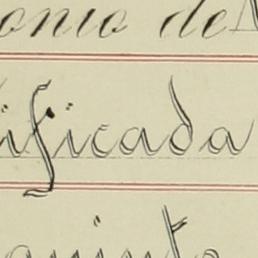 onio de
ificada
quinto